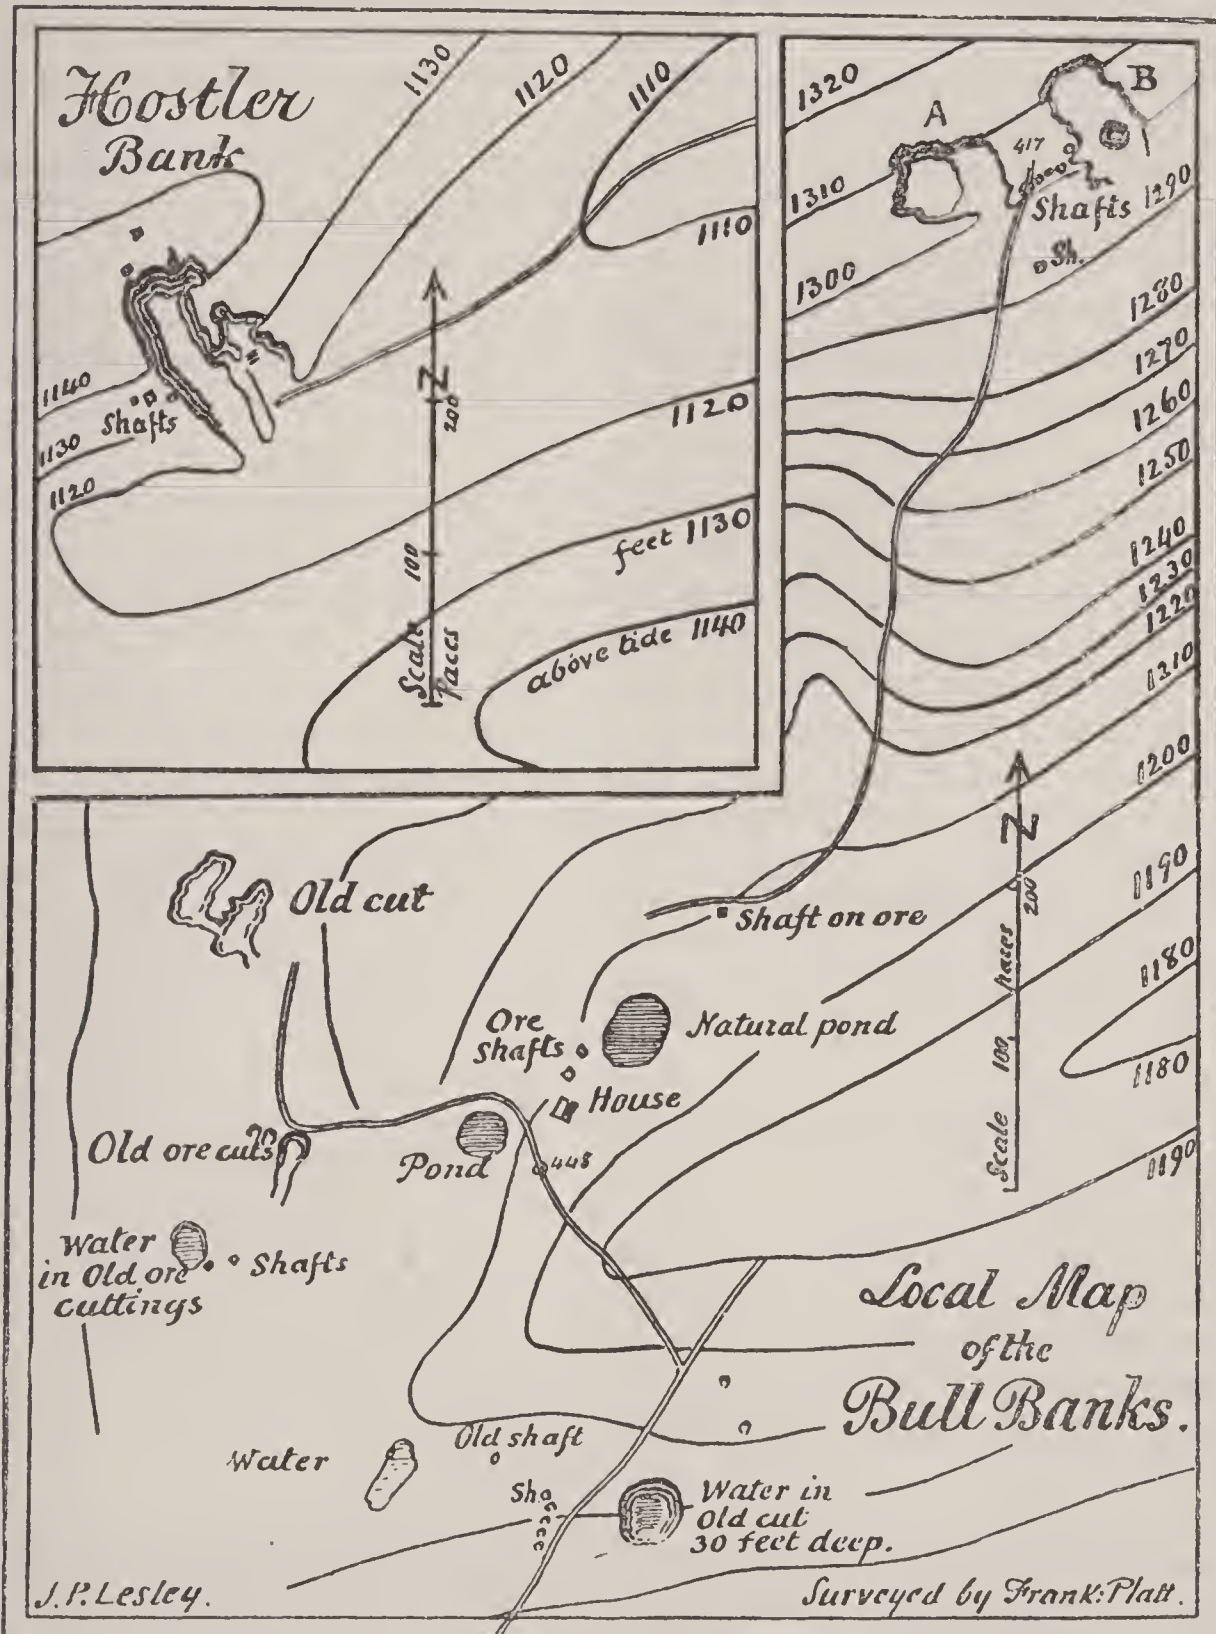 Hostler
Bank
1130
1120
1110
1110
1140
Shafts
1130
1120
N
200
1120
100
feet 1130
above tide 1140
Scale
Paces
1320
A
B
417
1310
Shafts
1290
Sh.
1300
1280
1270
1260
1250
1240
1230
1220
1210
1200
N
1190
200
Paces
1180
100
1180
Scale
1190
Old cut
Shaft on ore
Ore
shafts
Natural pond
House
Old ore cuts
Pond
448
Water
in Old ore
cuttings
Shafts
Local Map
of the
Bull Banks.
Old shaft
Water
Sh
Water in
Old cut
30 feet deep.
J. P. Lesley.
Surveyed by Frank: Platt.